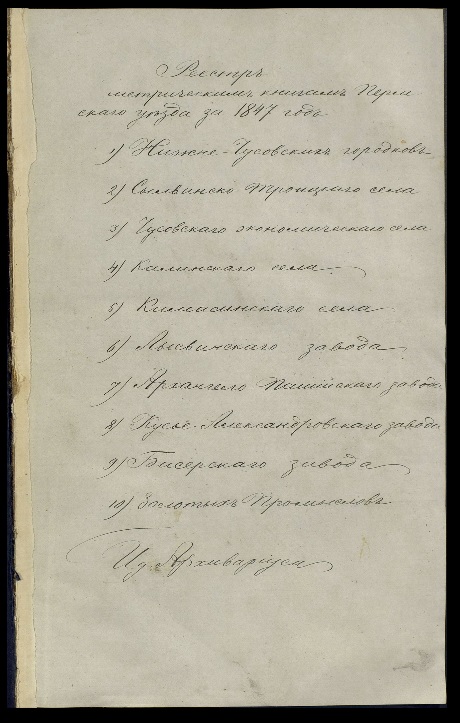 Реестръ
метрическимъ книгамъ Перм
скаго уѣзда за 1847 годъ
1) Нижне-Чусовскихъ городковъ
2) Сылвинско Троицкаго села
3) Чусовскаго экономическаго села
4) Калинскаго села
5) Камасинскаго села
6) Лысвинскаго завода
7) Архангело Пашійскаго завода
8) Кусье-Александровскаго завода
9) Бисерскаго завода
10) Золотыхъ Промысловъ
И.д. Архиваріуса